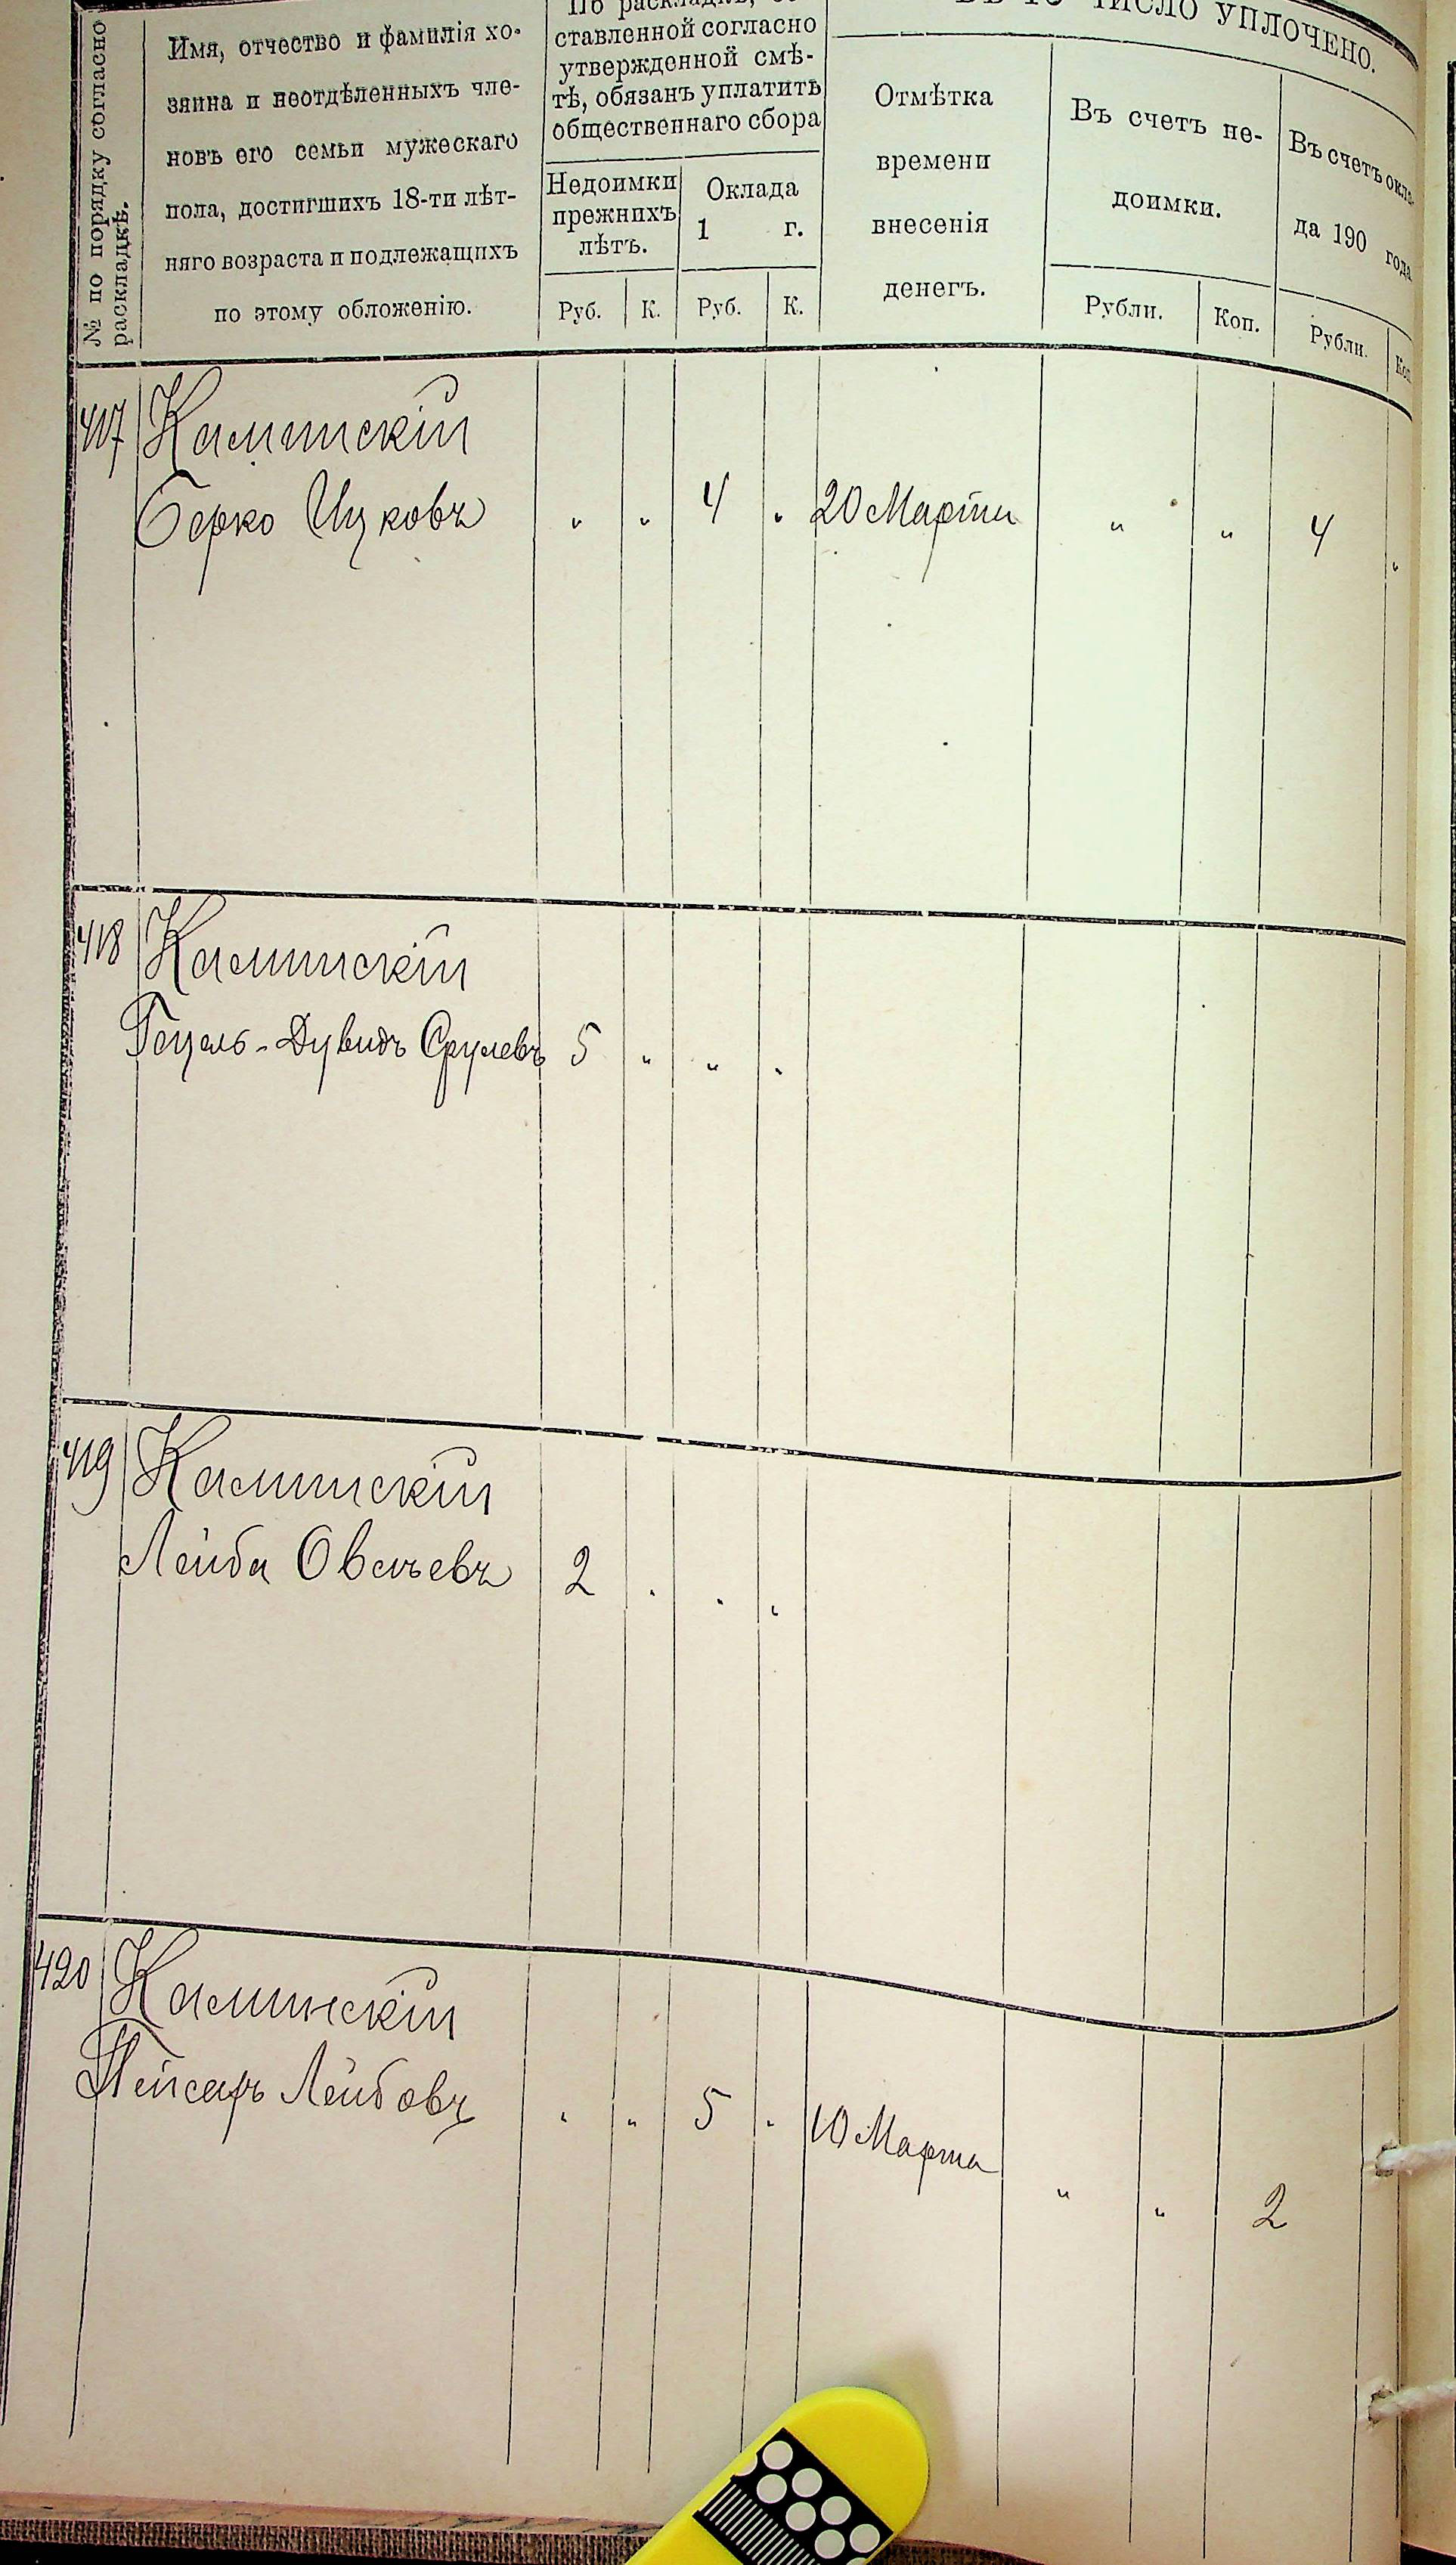 № по порядку согласно
раскладкѣ.
Имя, отчество и фамилія хо-
зяина и неотдѣленныхъ чле-
новъ его семьи мужескаго
пола, достигшихъ 18-ти лѣт-
няго возраста и подлежащихъ
по этому обложенію.
По раскладкѣ, со-
ставленной согласно
утвержденной смѣ-
тѣ, обязанъ уплатить
общественнаго сбора
Недоимки
прежнихъ
лѣтъ.
Руб. К.
Оклада
1 г.
Руб. К.
ВЪ ТО ЧИСЛО УПЛОЧЕНО.
Отмѣтка
времени
внесенія
денегъ.
Въ счетъ не-
доимки.
Рубли. Коп.
Въ счетъ окла-
да 190 года
Рубли. Коп
417 Каминскій
Берко Ицковъ " " 4 " 20 Марта " " 4 "
418 Каминскій
Гецель-Дувидъ Срулевъ 5 " " "
419 Каминскій
Лейба Овсеевъ 2 " " "
420 Каминскій
Пейсахъ Лейбовъ " " 5 " 10 Марта " " 2